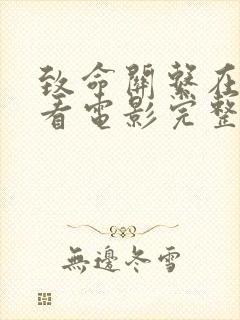 致命關繫在
看電影完整
無邊冬雪